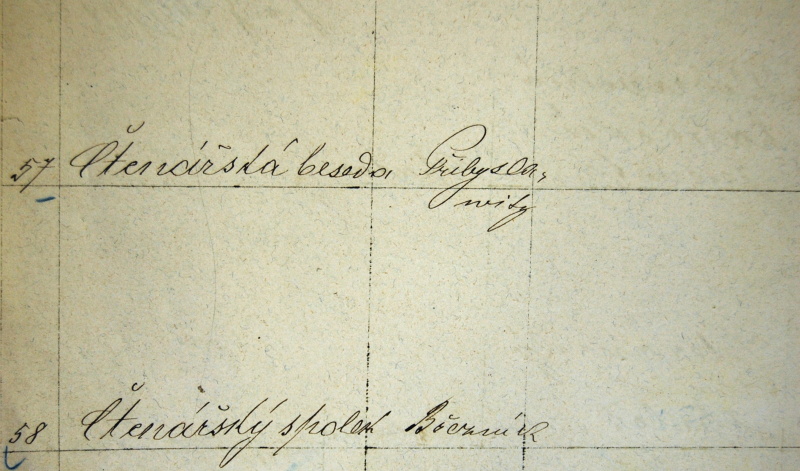 57 Čtenářská beseda Přibysla-
witz
58 Čtenářský spolek Březník